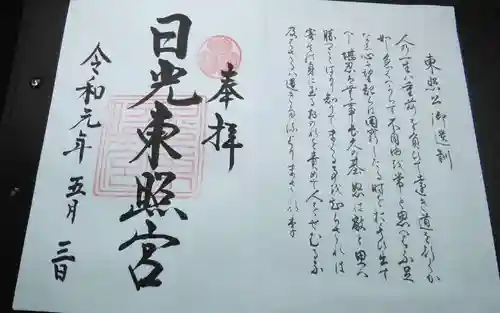 東照公御遺訓
人の一生は重荷を負ひて遠き道を行くか
如し急くへからす不自由を常と思へは不足
なし心に望起らは困窮したる時を思ひ出す
へし堪忍は無事長久の基怒は敵と思へ
勝つことはかり知りてまくる事を知らされは
害其の身に至るおのれを責めて人をせむるな
及はさるは過きたるよりまされり
奉拝
日光東照宮
令和元年五月三日